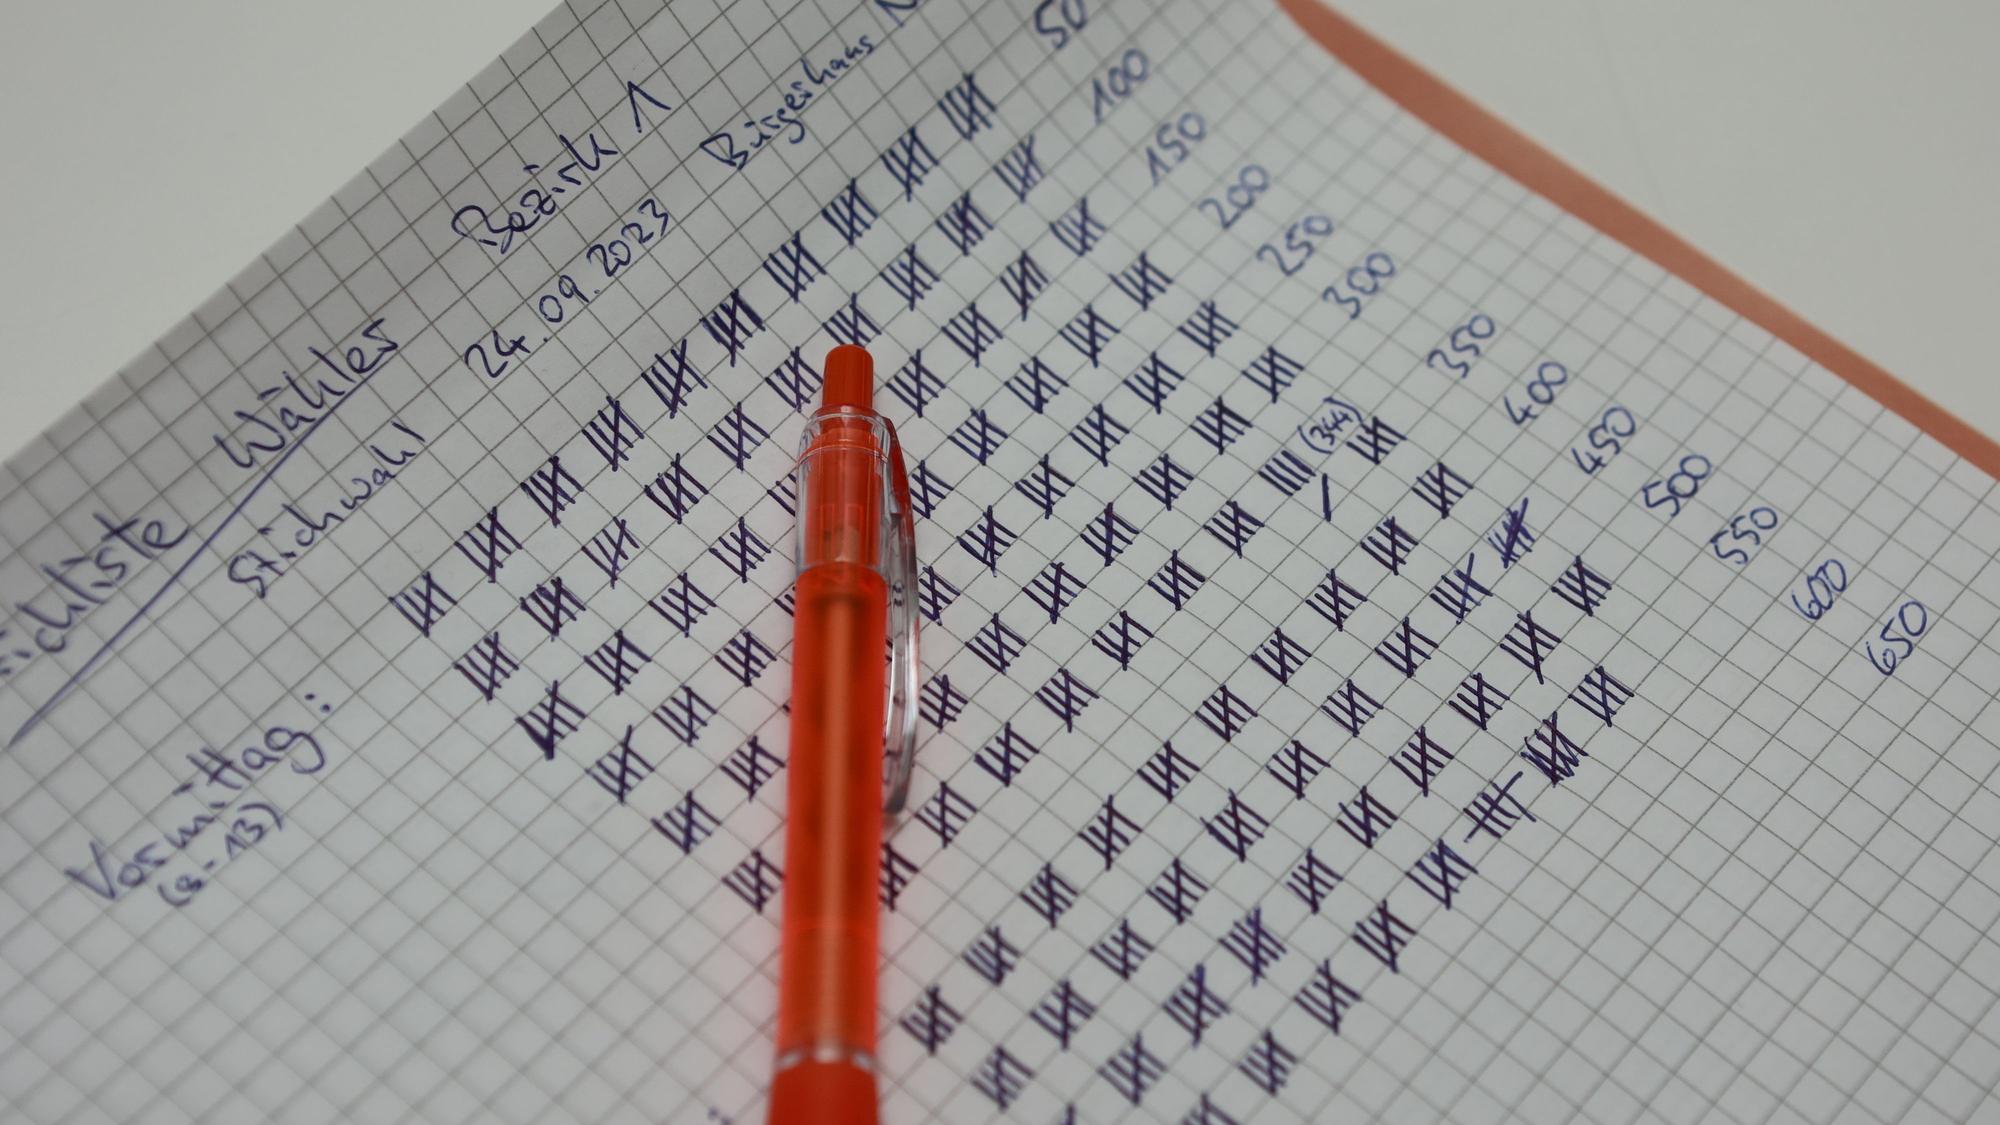 Wähler Bezirk 1
Stichwahl 24.09.2023 Bürgerhaus
Vormittag:
(8-13)
50
100
150
200
250
300
(344)
350
400
450
500
550
600
650